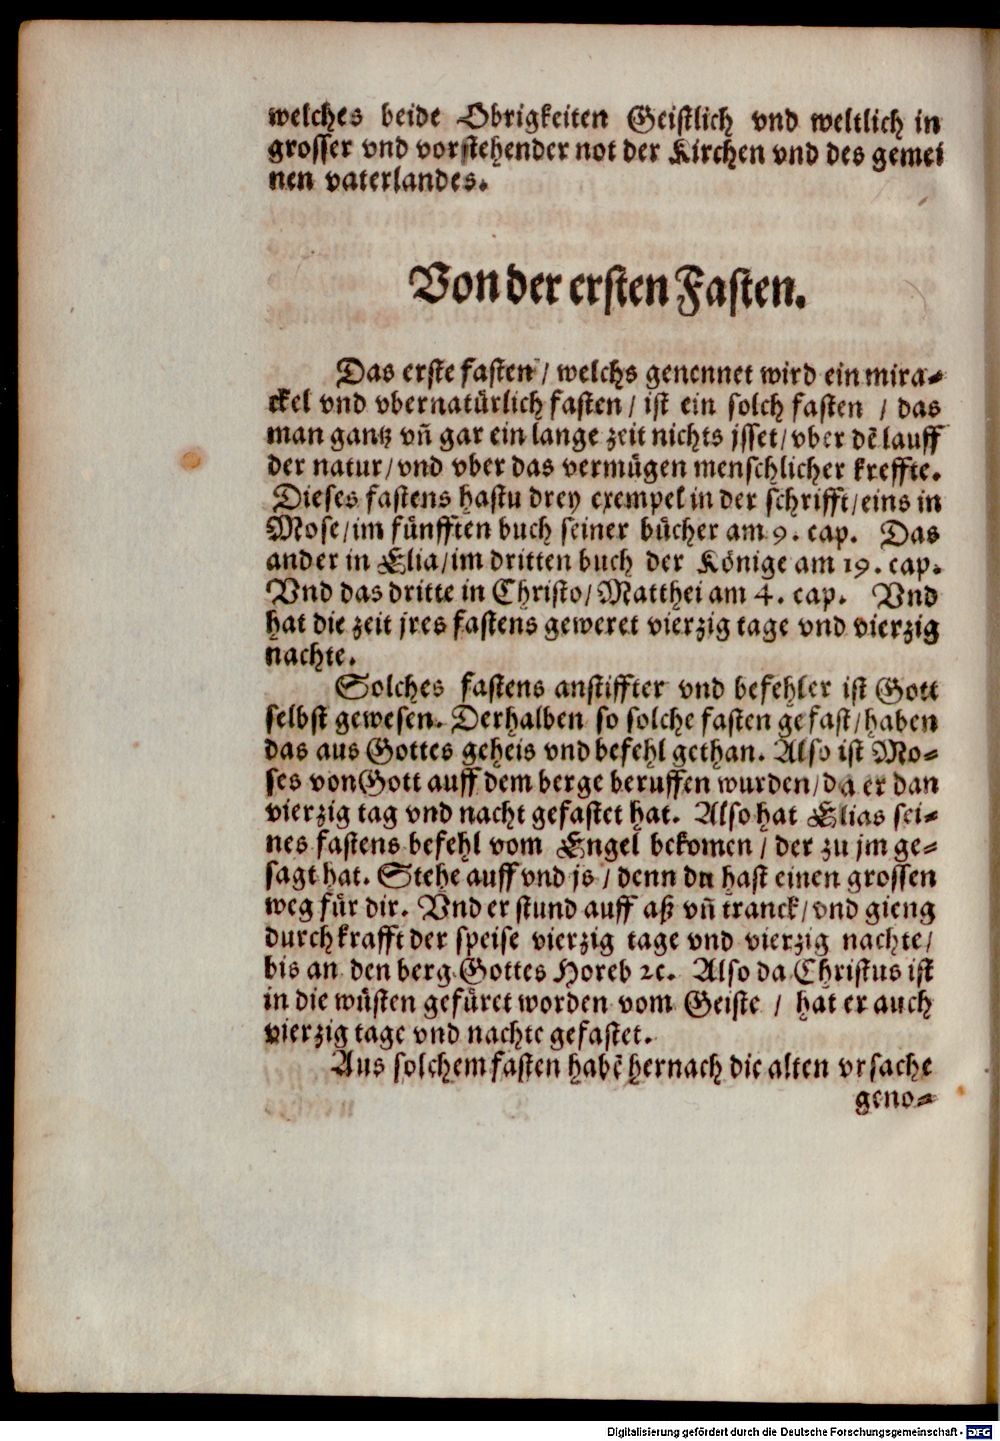 welches beide Obrigkeiten Geistlich vnd weltlich in
grosser vnd vorstehender not der Kirchen vnd des gemei
nen vaterlandes.
Von der ersten Fasten.
Das erste fasten / welchs genennet wird ein mira-
ckel vnd vbernatürlich fasten / ist ein solch fasten / das
man gantz vñ gar ein lange zeit nichts jsset / vber dẽ lauff
der natur / vnd vber das vermügen menschlicher kreffte.
Dieses fastens hastu drey exempel in der schrifft / eins in
Mose / im fünfften buch seiner bücher am 9. cap. Das
ander in Elia / im dritten buch der Könige am 19. cap.
Vnd das dritte in Christo / Matthei am 4. cap. Vnd
hat die zeit jres fastens geweret vierzig tage vnd vierzig
nachte.
Solches fastens anstiffter vnd befehler ist Gott
selbst gewesen. Derhalben so solche fasten gefast / haben
das aus Gottes geheis vnd befehl gethan. Also ist Mo-
ses von Gott auff dem berge beruffen wurden / da er dan
vierzig tag vnd nacht gefastet hat. Also hat Elias sei-
nes fastens befehl vom Engel bekomen / der zu jm ge-
sagt hat. Stehe auff vnd js / denn du hast einen grossen
weg für dir. Vnd er stund auff aß vñ tranck / vnd gieng
durch krafft der speise vierzig tage vnd vierzig nachte /
bis an den berg Gottes Horeb ꝛc. Also da Christus ist
in die wüsten gefüret worden vom Geiste / hat er auch
vierzig tage vnd nachte gefastet.
Aus solchem fasten habẽ hernach die alten vrsache
geno-
Digitalisierung gefördert durch die Deutsche Forschungsgemeinschaft - DFG